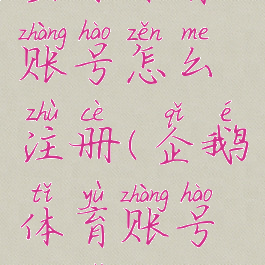 zhàng hào zěn me
账号怎么
zhù cè qǐ é
注册(企鹅
tǐ yù zhàng hào
体育账号